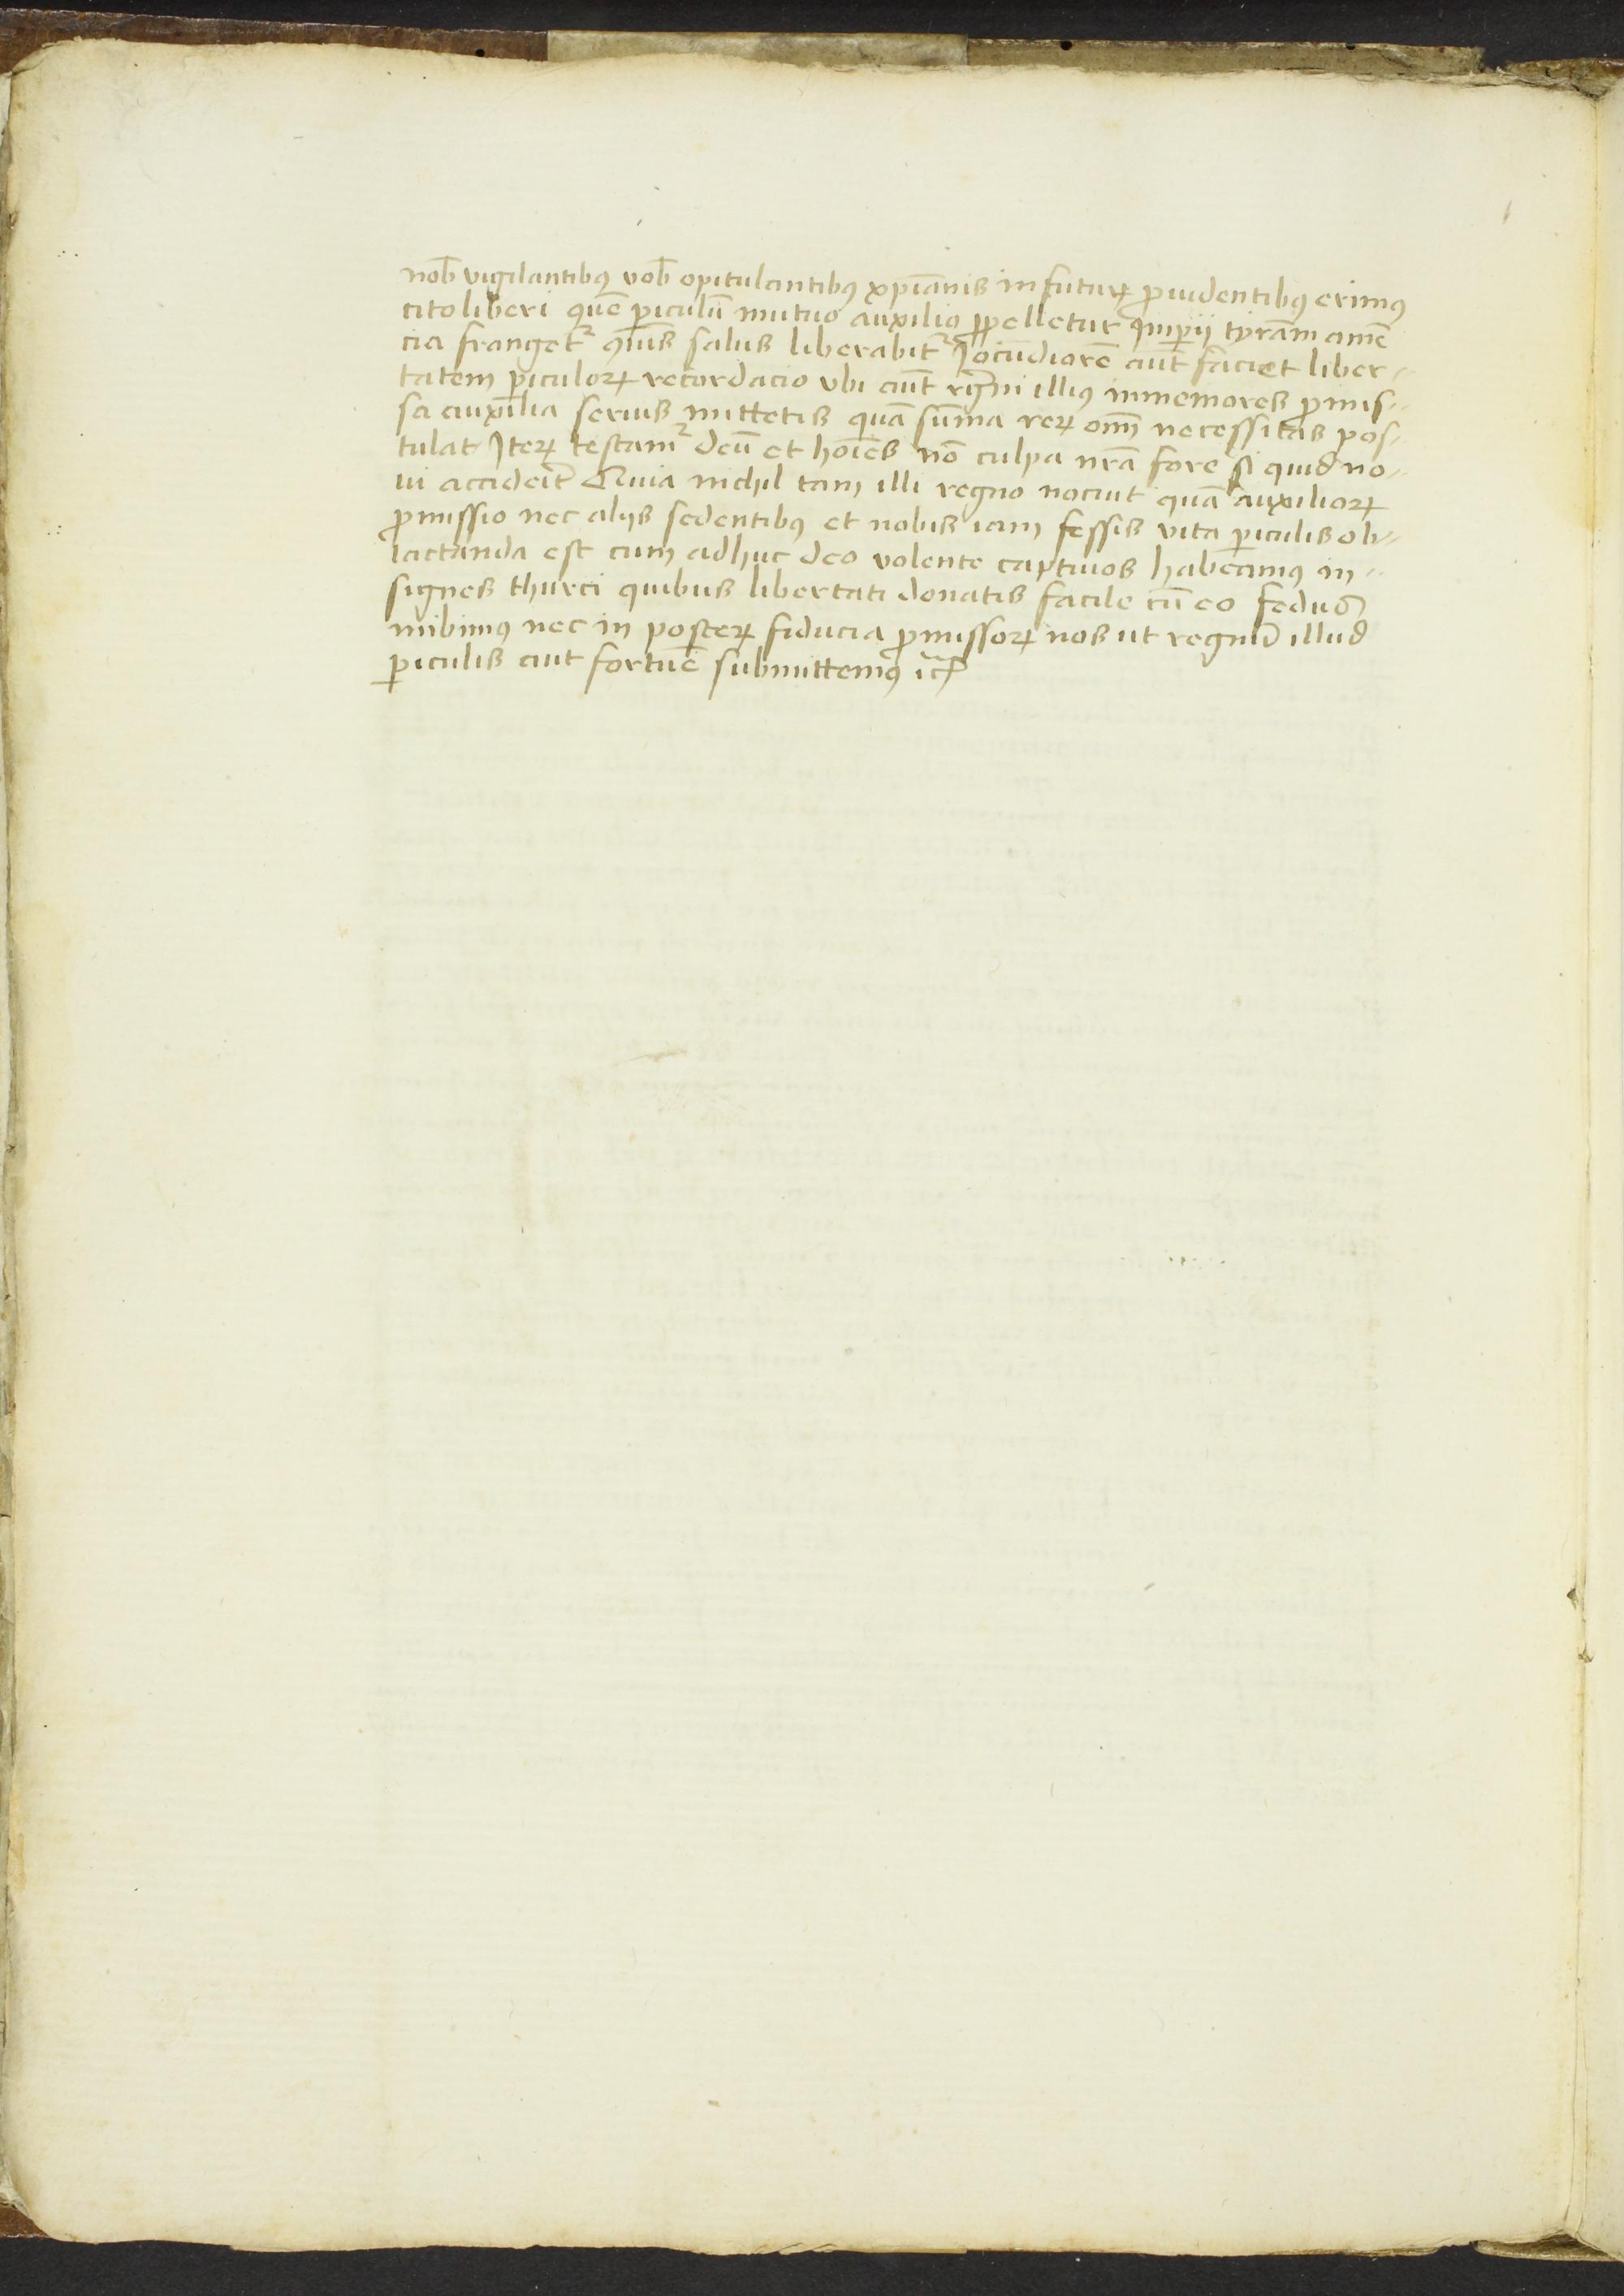 nob̄ vigilantibꝯ vob̄ opitulantibꝯ xp̄ianis in futuꝝ ꝓuidentibꝯ erimꝯ
cito liberi quē ꝑiculū mutuo auxilio ꝓpelletur Imꝑij tyrām amē
cia franget᷑ salus liberabit᷑ Jocūdiorē aūt faciet liber-
tatem ꝑiculoꝝ recordacio vbi aūt illiꝯ inmemores ꝓmis-
sa auxilia serius mittetis quā sūma reꝝ om̄ necessitas pos-
tulat Iteꝝ testam᷑ deū et hoīes nō culpa nr̄a fore si quid no-
ui acciderit Quia nichil tam illi regno nocuit quā auxilioꝝ
ꝓmissio nec alijs sedentibꝯ et nobis iam fessis vita ꝑiculis ob-
iactanda est cum adhuc deo volente captiuos habeamꝯ in-
signes thurci quibus libertati donatis facile cū eo fedus
inibimꝯ nec in posteꝝ fiducia ꝓmissoꝝ nos ut regnū illud
ꝑiculis aut fortūe submittemꝯ